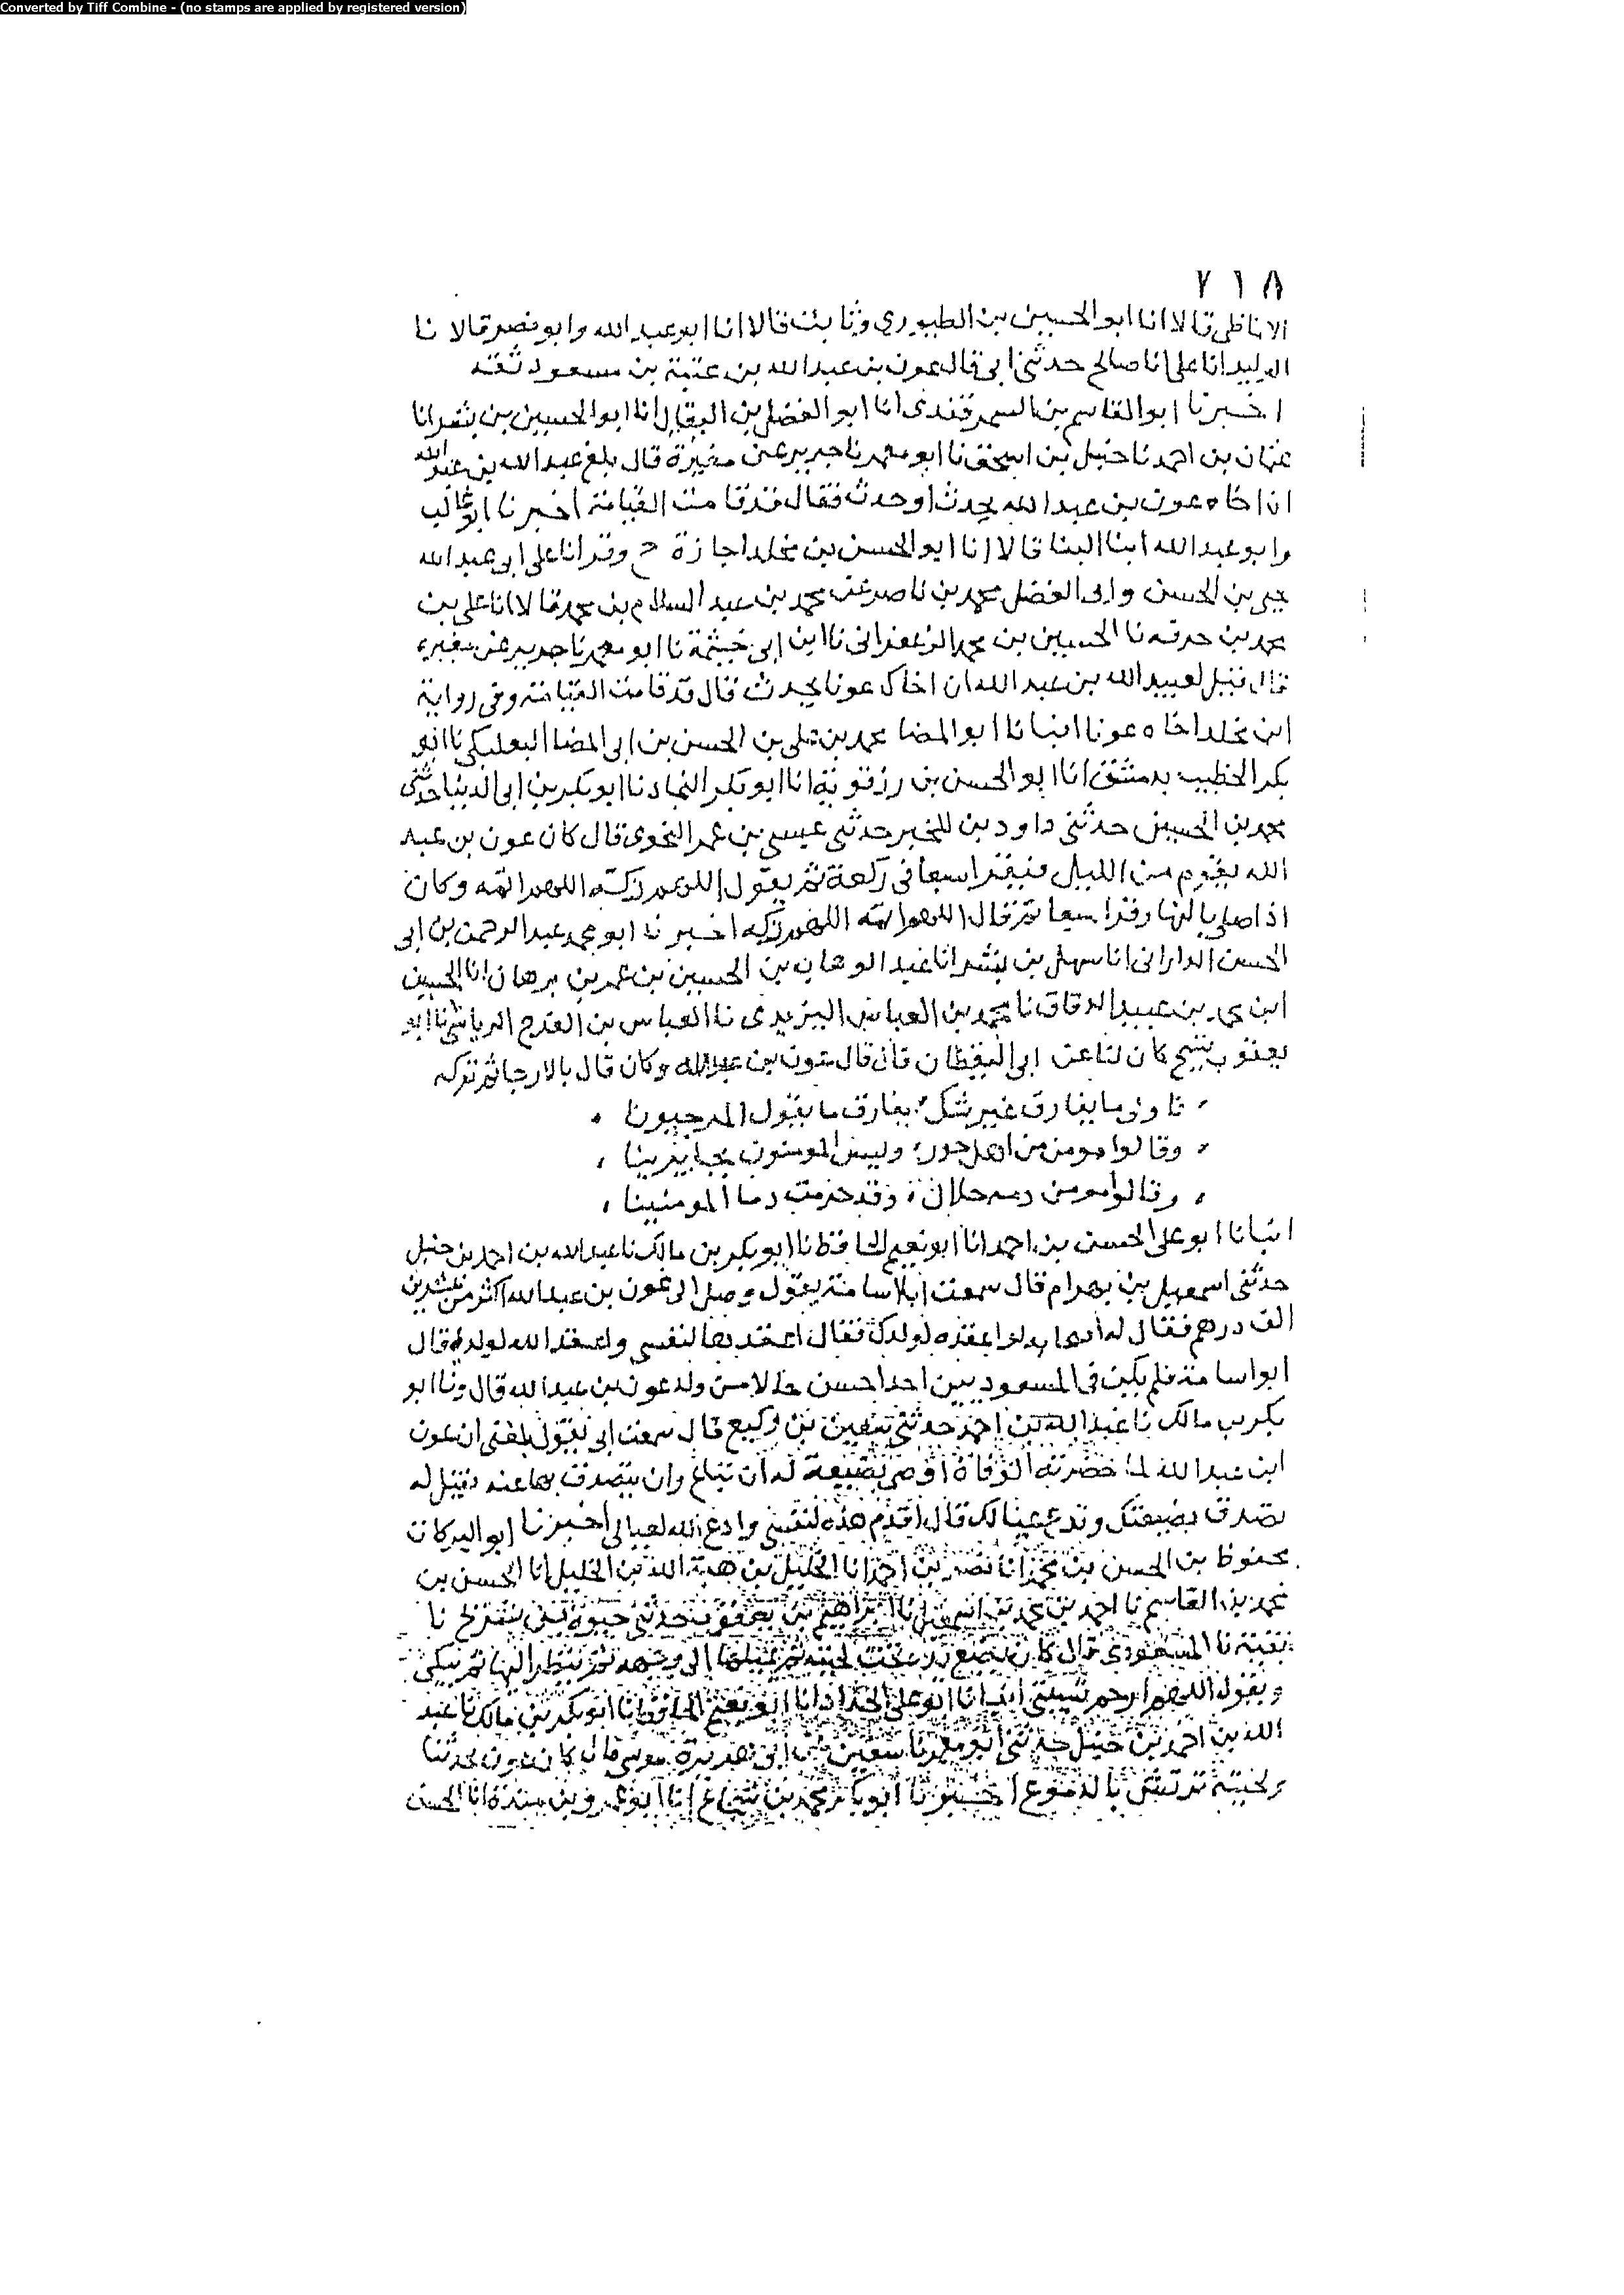 Converted by Tiff Combine - (no stamps are applied by registered version)
٧١٨
الانماطى قالا انا ابو الحسين بن الطيورى وثابت قالا انا ابو عبد الله وابو نصر قالا نا
الوليد انا على انا صالح حدثنى ابى قال عون بن عبد الله بن عتبة بن مسعود ثقة
اخبرنا ابو القاسم بن السمرقندى انا ابو الفضل بن البقال انا ابو الحسين بن بشر انا
عثمان بن احمد نا حنبل بن اسحق نا ابو معمر نا جرير عن مغيرة قال بلغ عبد الله بن عبد الله
ان اخاه عون بن عبد الله يحدث او حدث فقال قد قامت القيامة اخبرنا ابو غالب
وابو عبد الله ابنا البنا قالا انا ابو الحسن بن مخلد اجازة ح وقرانا على ابى عبد الله
يحيى بن الحسن وابى الفضل محمد بن ناصر عن محمد بن عبد السلام بن محمد قالا انا على بن
محمد بن خزفه نا الحسين بن محمد الزعفرانى نا ابن ابى خيثمة نا ابو معمر نا جرير عن مغيرة
قال قيل لعبيد الله بن عبد الله ان اخاك عونا يحدث قال قد قامت القيامة وفى رواية
ابن مخلد اخاه عونا انبانا ابو المضا محمد بن على بن الحسن بن ابى المضا البعلبكى نا ابو
بكر الخطيب بدمشق انا ابو الحسن بن رزقوية انا ابو بكر النجاد نا ابو بكر بن ابى الدنيا حدثنى
محمد بن الحسين حدثنى داود بن المحبر حدثنى عيسى بن عمر النحوى قال كان عون بن عبد
الله يقوم من الليل فيقرا سبعا فى ركعة ثم يقول اللهم زكه اللهم اتمه وكان
اذا صلى بالنهار وقرا سبعا ثم قال اللهم اتمه اللهم زكه اخبرنا ابو محمد عبد الرحمن بن ابى
الحسن الدارانى انا سهل بن بشر انا عبد الوهاب بن الحسين بن عمر بن برهان انا الحسين
ابن محمد بن عبيد الدقاق نا محمد بن العباس اليزيدى نا العباس بن الفرج الرياشى نا ابو
يعقوب شيخ كان لنا عن ابى اليقظان قال قال عون بن عبد الله وكان قال بالارجا ثم تركه
، فاول ما يفارق غير شك ؛ يفارق ما يقول المرجيونا ،
، وقالوا مومن من اهل جور ؛ وليس المومنون بجايرينا ،
، وقالوا مومن دمه حلال ؛ وقد حرمت دما المومنينا ،
انبانا ابو على الحسن بن احمد انا ابو نعيم الحافظ نا ابو بكر بن مالك نا عبد الله بن احمد بن حنبل
حدثنى اسمعيل بن بهرام قال سمعت ابا اسامة يقول وصل الى عون بن عبد الله اكثر من عشرين
الف درهم فقال له اصحابه لو اعتقده لولدك فقال اعتقدها لنفسى واعتقد الله لولدى قال
ابو اسامة فلم يكن فى المسعوديين احد احسن حالا من ولد عون بن عبد الله قال ونا ابو
بكر بن مالك نا عبد الله بن احمد حدثنى سفين بن وكيع قال سمعت ابى يقول بلغنى ان عون
ابن عبد الله لما حضرته الوفاة اوصى بضيعة له ان تباع وان يتصدق بها عنه فقيل له
تصدق بضيعتك وتدع عيالك قال اقدم هذه لنفسى وادع الله لعيالى اخبرنا ابو البركات
محفوظ بن الحسن بن محمد انا نصر بن احمد انا الخليل بن هبة الله بن الخليل انا الحسن بن
محمد بن القاسم نا احمد بن محمد بن اسمعيل نا ابراهيم بن يعقوب حدثنى حيوة بن شريح نا
بقية نا المسعودى قال كان يضع يده تحت لحيته ثم يميلها الى وجهه ثم ينظر اليها ثم يبكى
ويقول اللهم ارحم شيبتى انبانا ابو على الحداد انا ابو نعيم الحافظ نا ابو بكر بن مالك نا عبد
الله بن احمد بن حنبل حدثنى ابو معمر نا سفين عن ابى هرون موسى قال كان عون يحدثنا
ولحيته ترتش بالدموع اخبرنا ابو بكر محمد بن شجاع انا ابو عمرو بن مندة انا الحسن